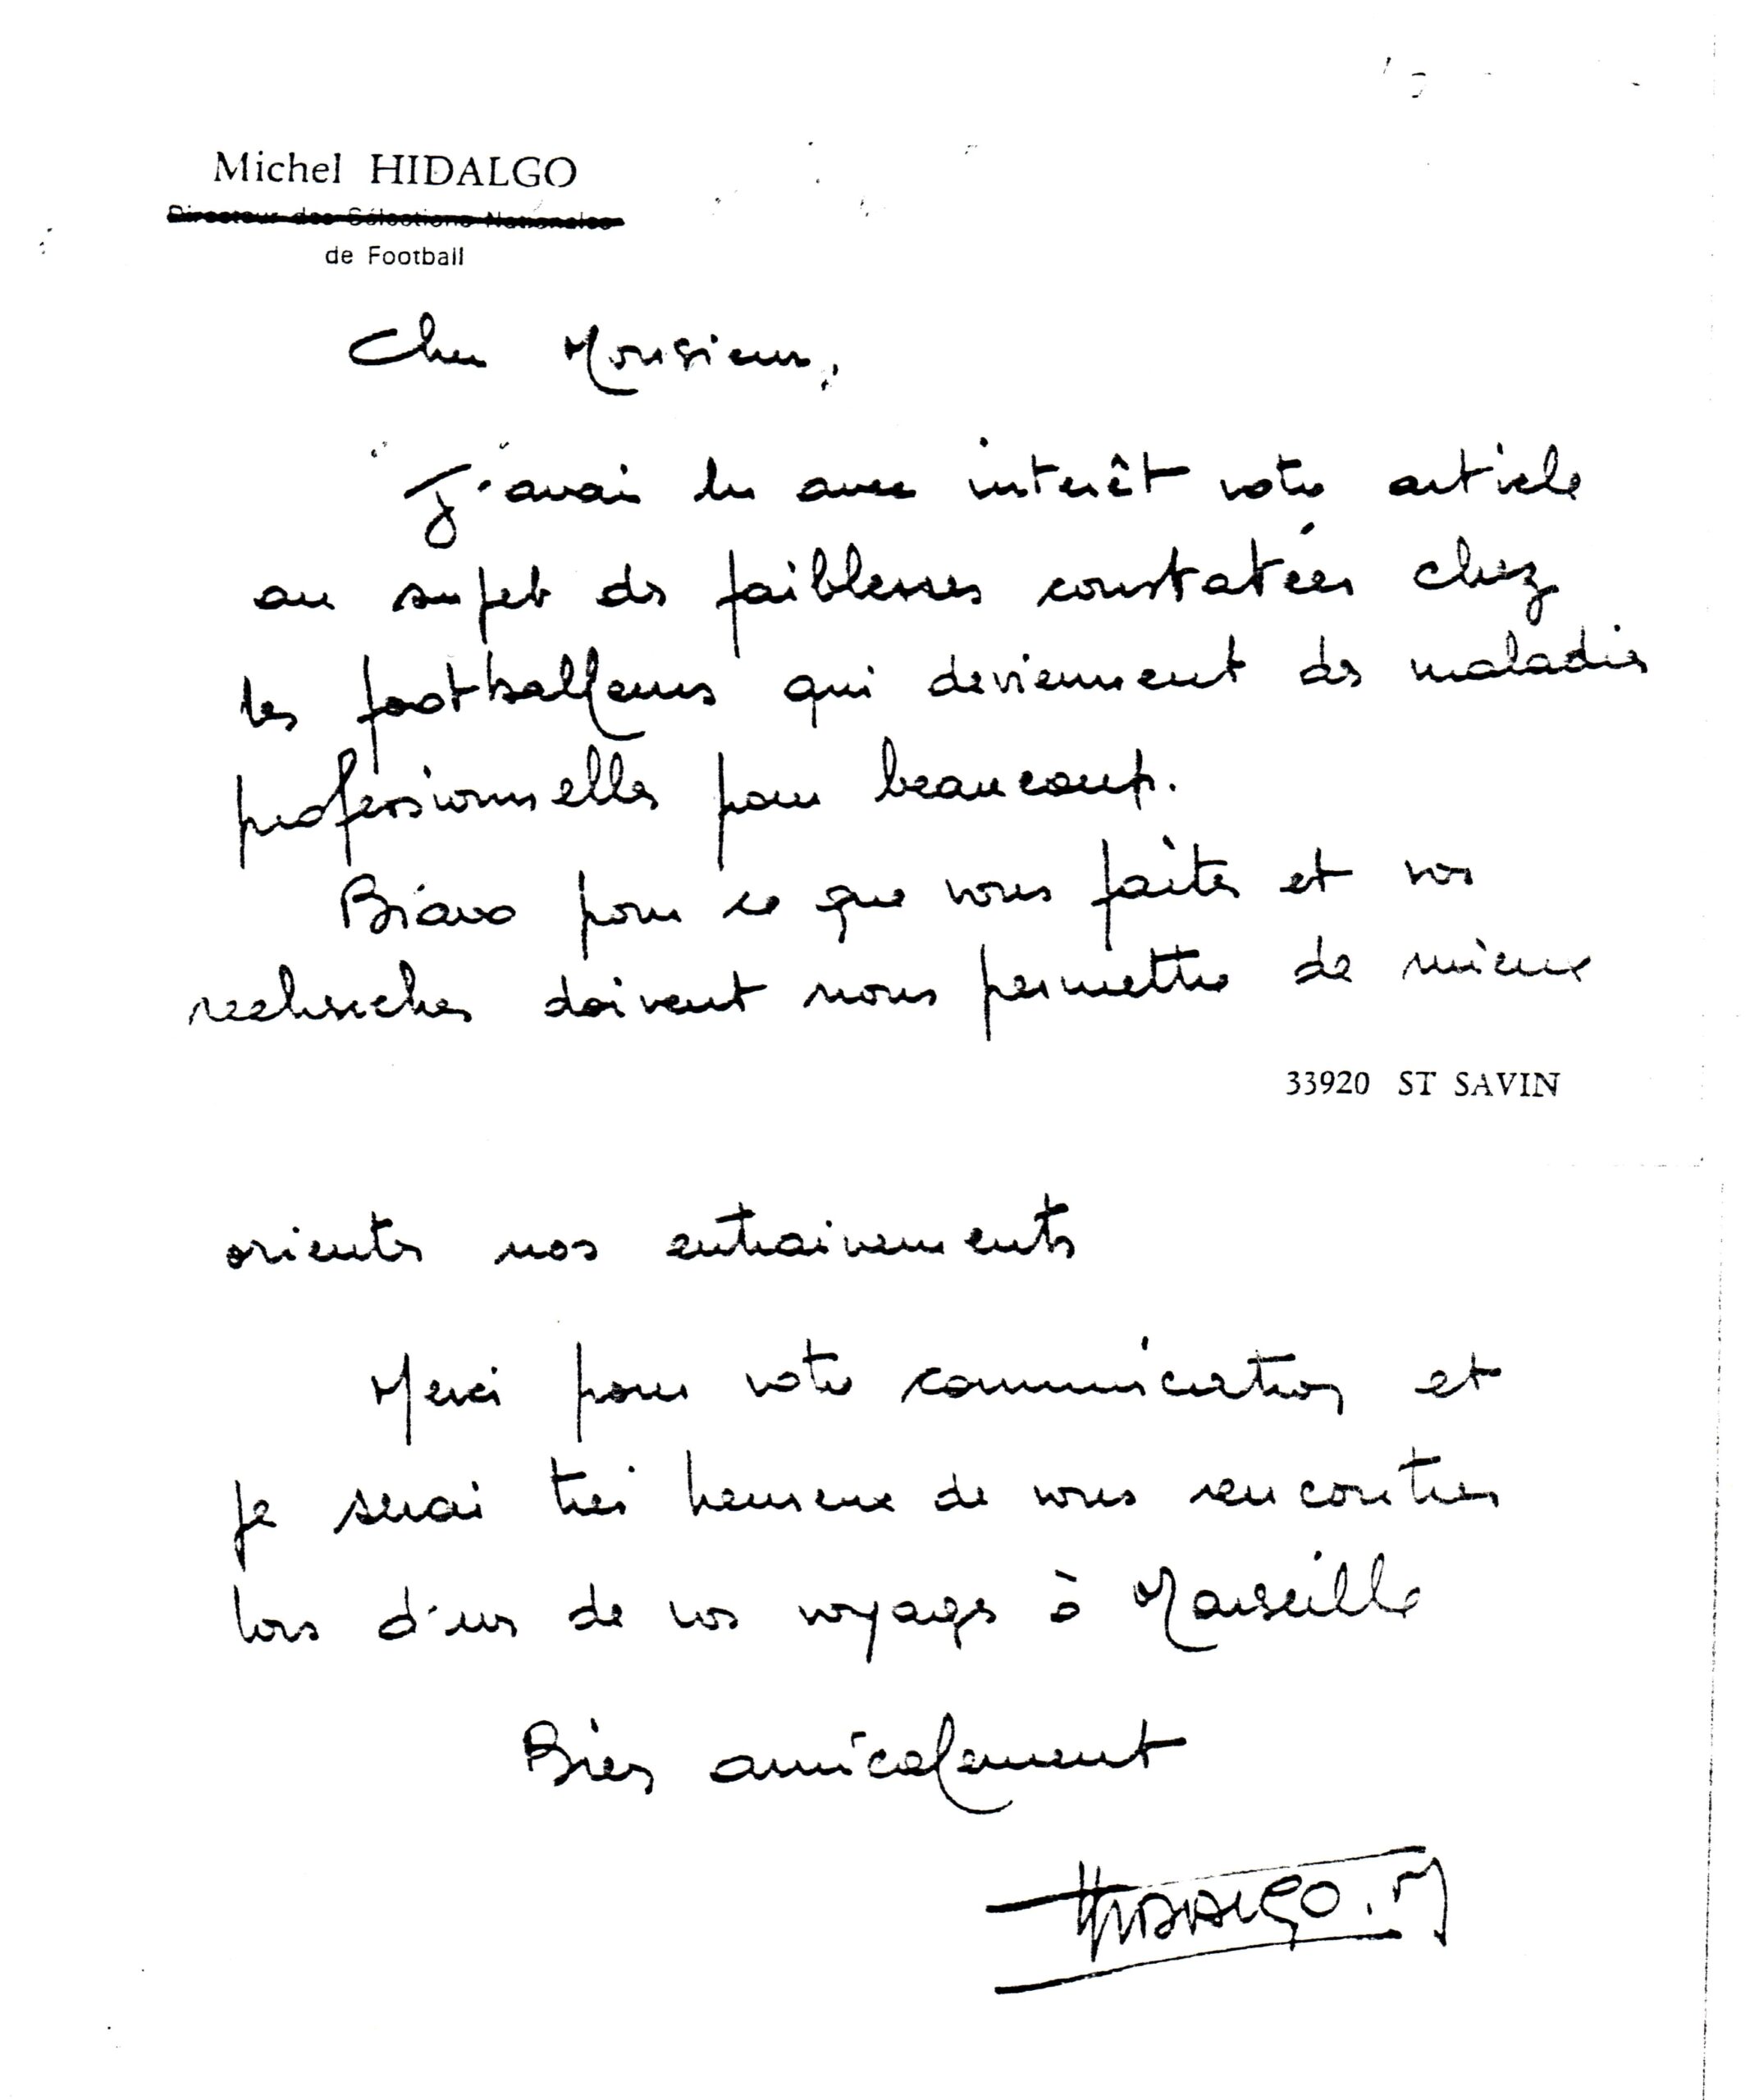 Michel HIDALGO
Directeur des Sélections Nationales
de Football
Cher Monsieur,
J'avais lu avec interêt votre article
au sujet des faiblesses constatées chez
les footballeurs qui deviennent des maladies
professionnelles pour beaucoup.
Bravo pour ce que vous faites et vos
recherches doivent nous permettre de mieux
33920 ST SAVIN
orienter nos entrainements
Merci pour votre communication et
je serai très heureux de vous rencontrer
lors d'un de vos voyages à Marseille
Bien amicalement
HIDALGO. M